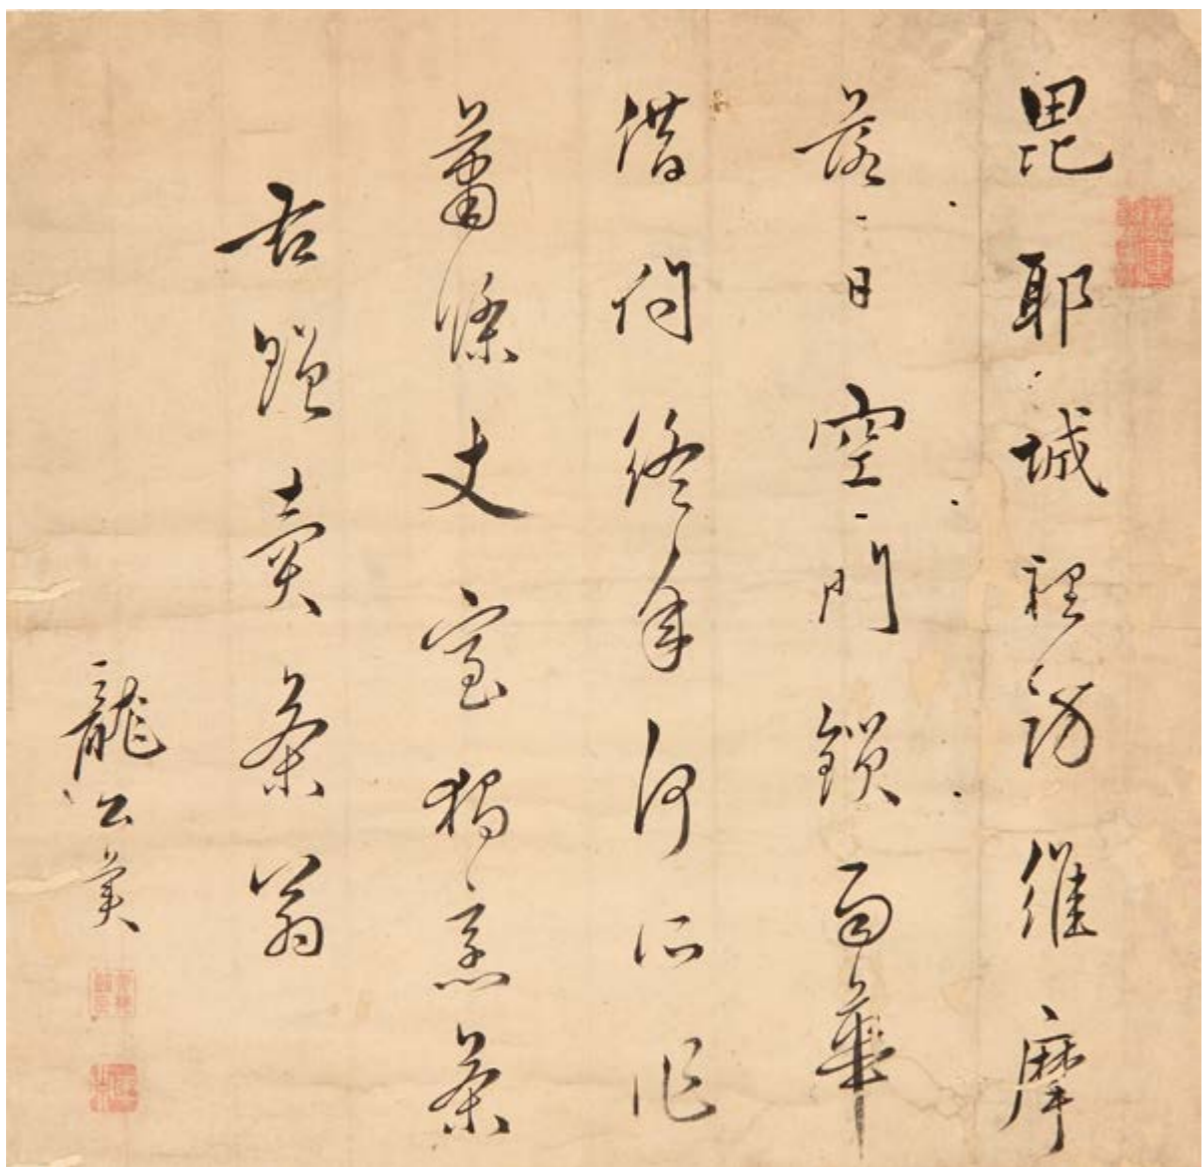 毘耶城裡訪維摩
落日空門鎖雨華
借問終年何所作
蕭條丈室獨烹茶
右贈賣茶翁
龍公美